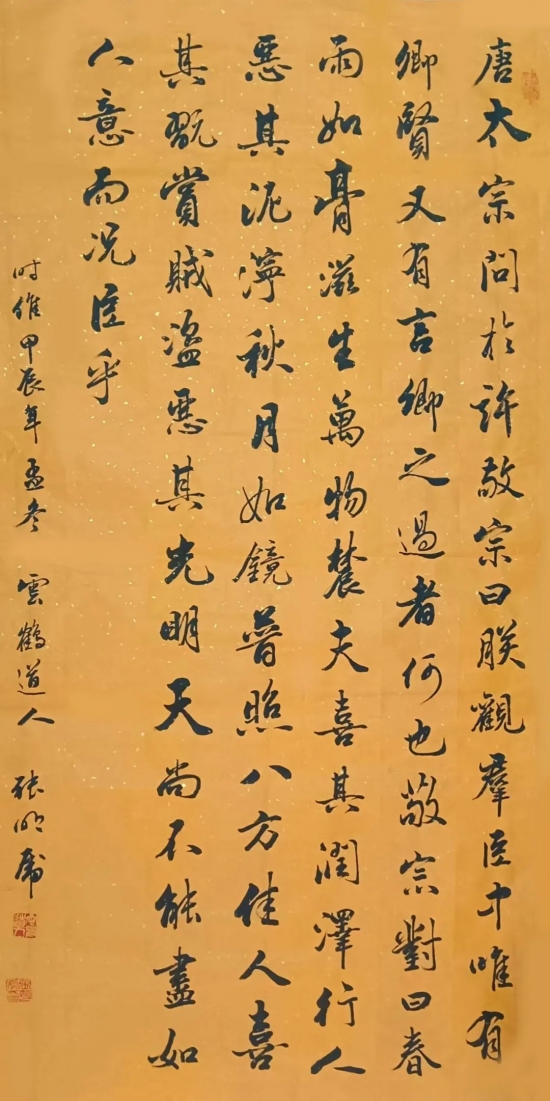 唐太宗問於許敬宗曰朕觀羣臣中唯有
卿賢又有言卿之過者何也敬宗對曰春
雨如膏滋生萬物農夫喜其潤澤行人
惡其泥濘秋月如鏡普照八方佳人喜
其玩賞賊盜惡其光明天尚不能盡如
人意而况臣乎
时維甲辰年孟冬 雲鶴道人 張明虎